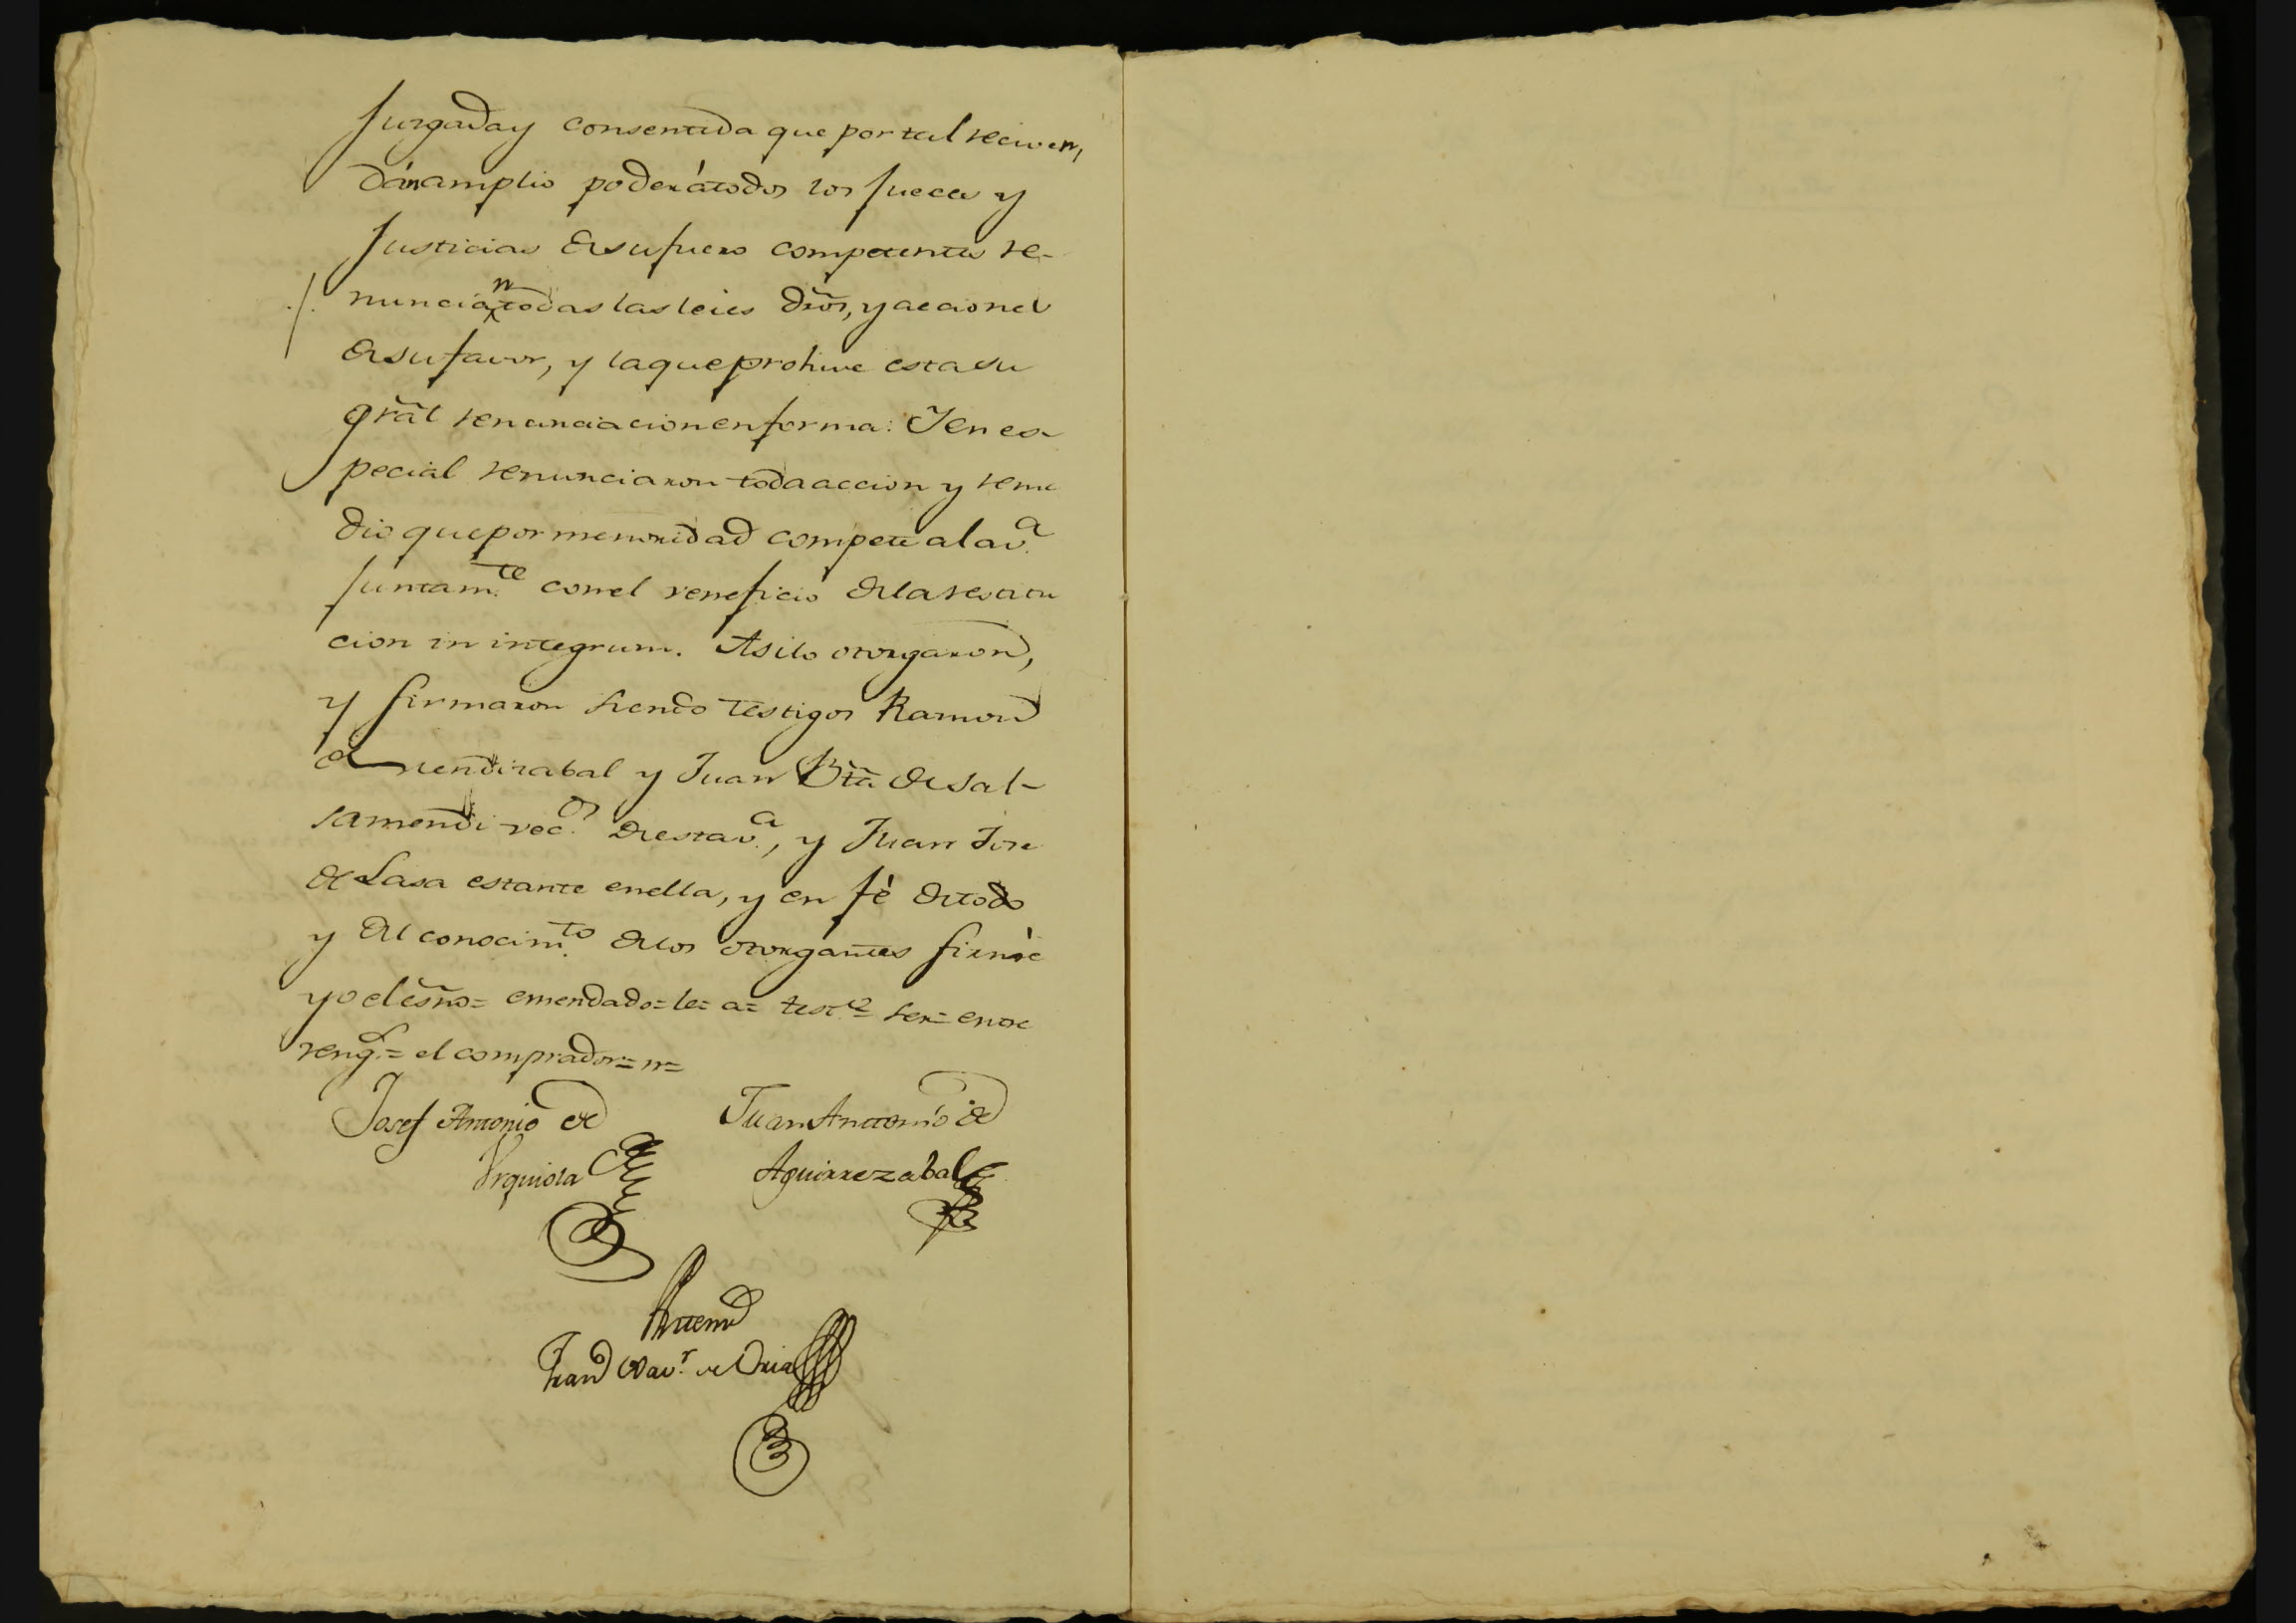 Juzgada y consentida que por tal reciven,
dán amplio poder á todos los Jueces y
Justicias de su fuero competentes re-
nuncian todas las leies dr̃os, y acciones
de su favor, y la que prohive esta su
gr̃al renunciacion en forma: Y en es-
pecial renunciaron toda accion y reme
dio que por menoridad compete a la v.ª
Juntam.te con el veneficio de la restitu
cion in integrum. Asi lo otorgaron,
y firmaron siendo testigos Ramon
de Mendizabal y Juan Bta de Sal-
samendi vec.os de esta v.ª, y Juan Jose
de Lasa estante en ella, y en fé de todo
y del conocim.to de los otorgantes firmé
yo el esño= emendado= le= a= ser= entre
reng.s= el comprador= n=
Josef Antonio de Juan Antonio de
Urquiola Aguirrezabal
Antemi
Fran.co Xav.r de Oria